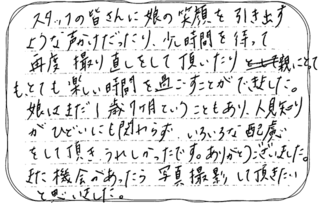 スタッフの皆さんに娘の笑顔を引き出す
ような声かけだったり、少し時間を待って
再度撮り直しをして頂いたりと親にとって
もとても楽しい時間を過ごすことができました。
娘はまだ1歳7ヶ月ということもあり、人見知り
がひどいにも関わらず、いろいろな配慮
をして頂き、うれしかったです。ありがとうございました。
また機会があったら写真撮影して頂きたい
と思いました。